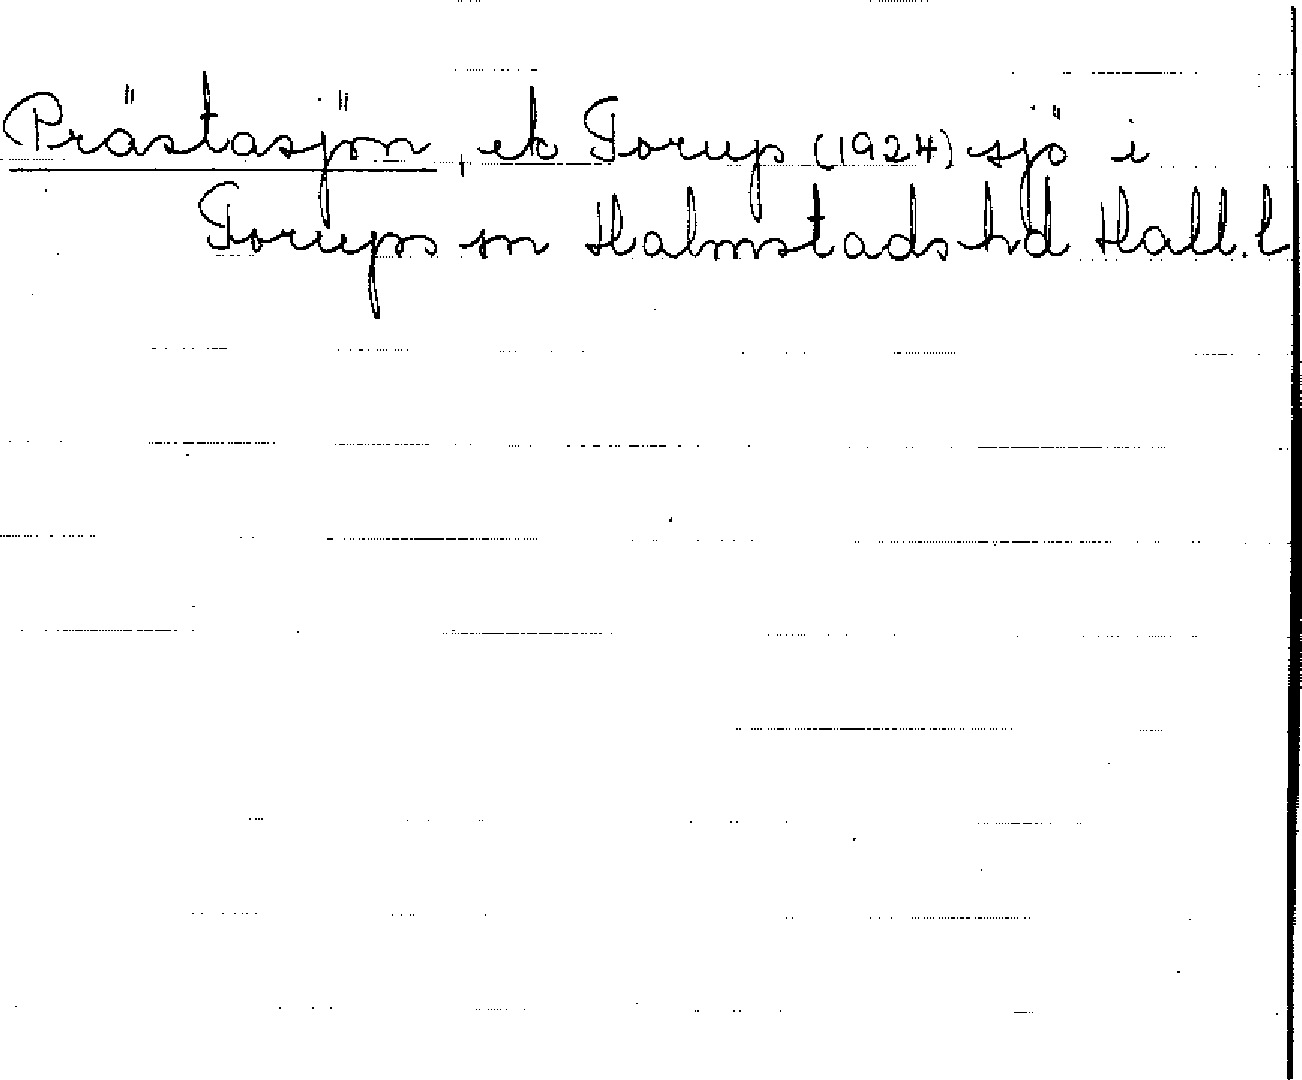 Prästasjön, ek Torup (1924) sjö i
Torups sn Halmstads hd Hall. l